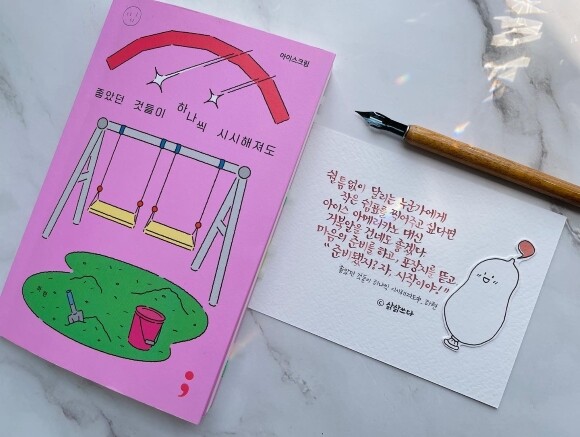 아이스크림
좋았던 것들이 하나씩 시시해져도
쉴 틈 없이 달리는 누군가에게
작은 쉼표를 찍어주고 싶다면
아이스 아메리카노 대신
거북알을 건네도 좋겠다.
마음의 준비를 하고, 포장지를 뜯고
"준비됐지? 자, 시작이야!"
좋았던 것들이 하나씩 시시해져도,
ⓒ 삶삶쓰다